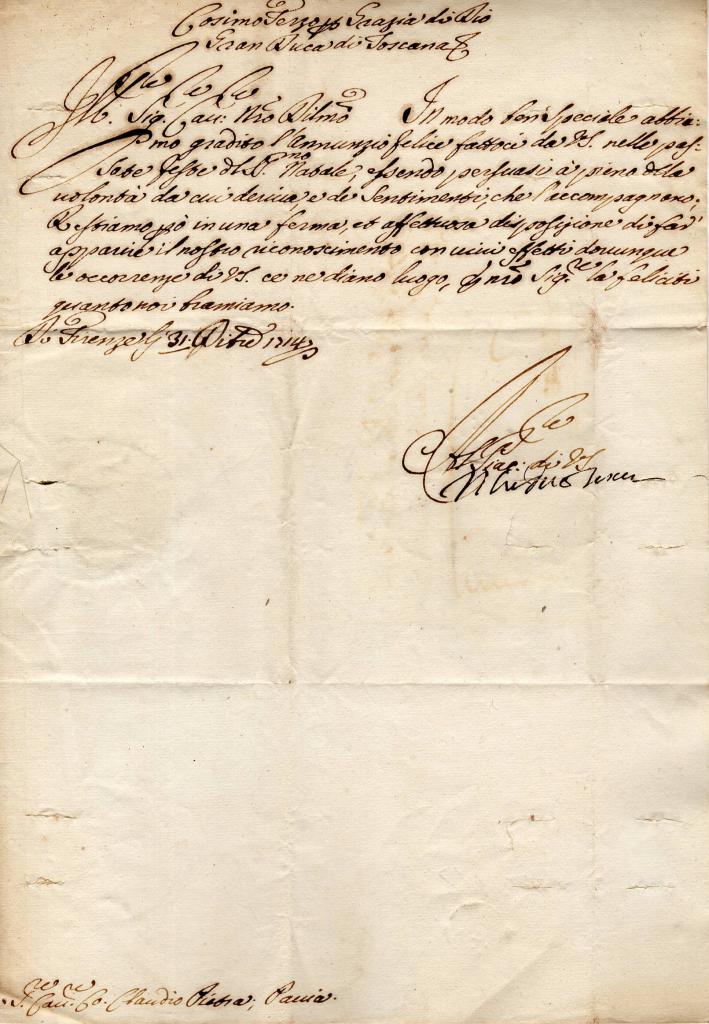 Cosimo Terzo p Grazia di Dio
Gran Duca di Toscana
Ill. Sig. Cav: Nro Dilmo In modo ben speciale abbia:
mo gradito l'annunzio felice fattoci da VS. nelle pas=
sate feste del S.mo Natale, essendo persuasi à pieno della
volontà da cui deriva, e de sentimenti, che l'accompagnano.
Restiamo pciò in una ferma, et affettuosa disposizione di far'
apparire il nostro riconoscimento con vivi effetti dovunque
le occorrenze di VS. ce ne diano luogo, e nro Sig.re la feliciti
quanto noi bramiamo.
Di Firenze li 31. Dibre 1714
Al Piac: di VS
Sr. Cav. Co. Claudio Pietra; Pavia.